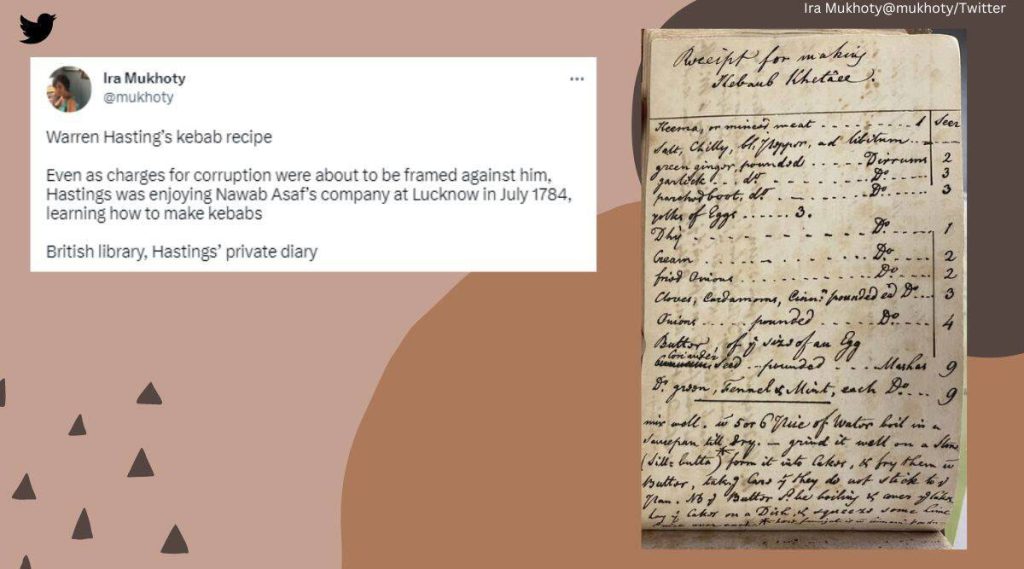 Ira Mukhoty@mukhoty/Twitter
Ira Mukhoty
@mukhoty
Warren Hasting's kebab recipe
Even as charges for corruption were about to be framed against him,
Hastings was enjoying Nawab Asaf's company at Lucknow in July 1784,
learning how to make kebabs
British library, Hastings' private diary
Receipt for making
Kebaub Khetâee.
Keema, or minced meat 1 Seer
Salt, Chilly, bl. Pepper, ad libitum
green ginger pounded Dirrums 2
garlick do Do 3
parched boot, do Do 3
yolks of Eggs 3.
Dhy Do 1
Cream Do 2
fried Onions Do 2
Cloves, Cardamoms, Cinn.n pounded ea Do 3
Onions pounded Do 4
Butter, of ye size of an Egg
Coriander Seed pounded Mashas 9
Do green, Fennel & Mint, each Do 9
mix well. w 5 or 6 Pice of Water boil in a
Saucepan till dry. – grind it well on a Stone
(Sill butta) form it into Cakes, & fry them in
Butter, taking Care ye they do not stick to ye
Pan. NB ye Butter sd. be boiling &
lay ye Cakes on a Dish, & squeeze some lime